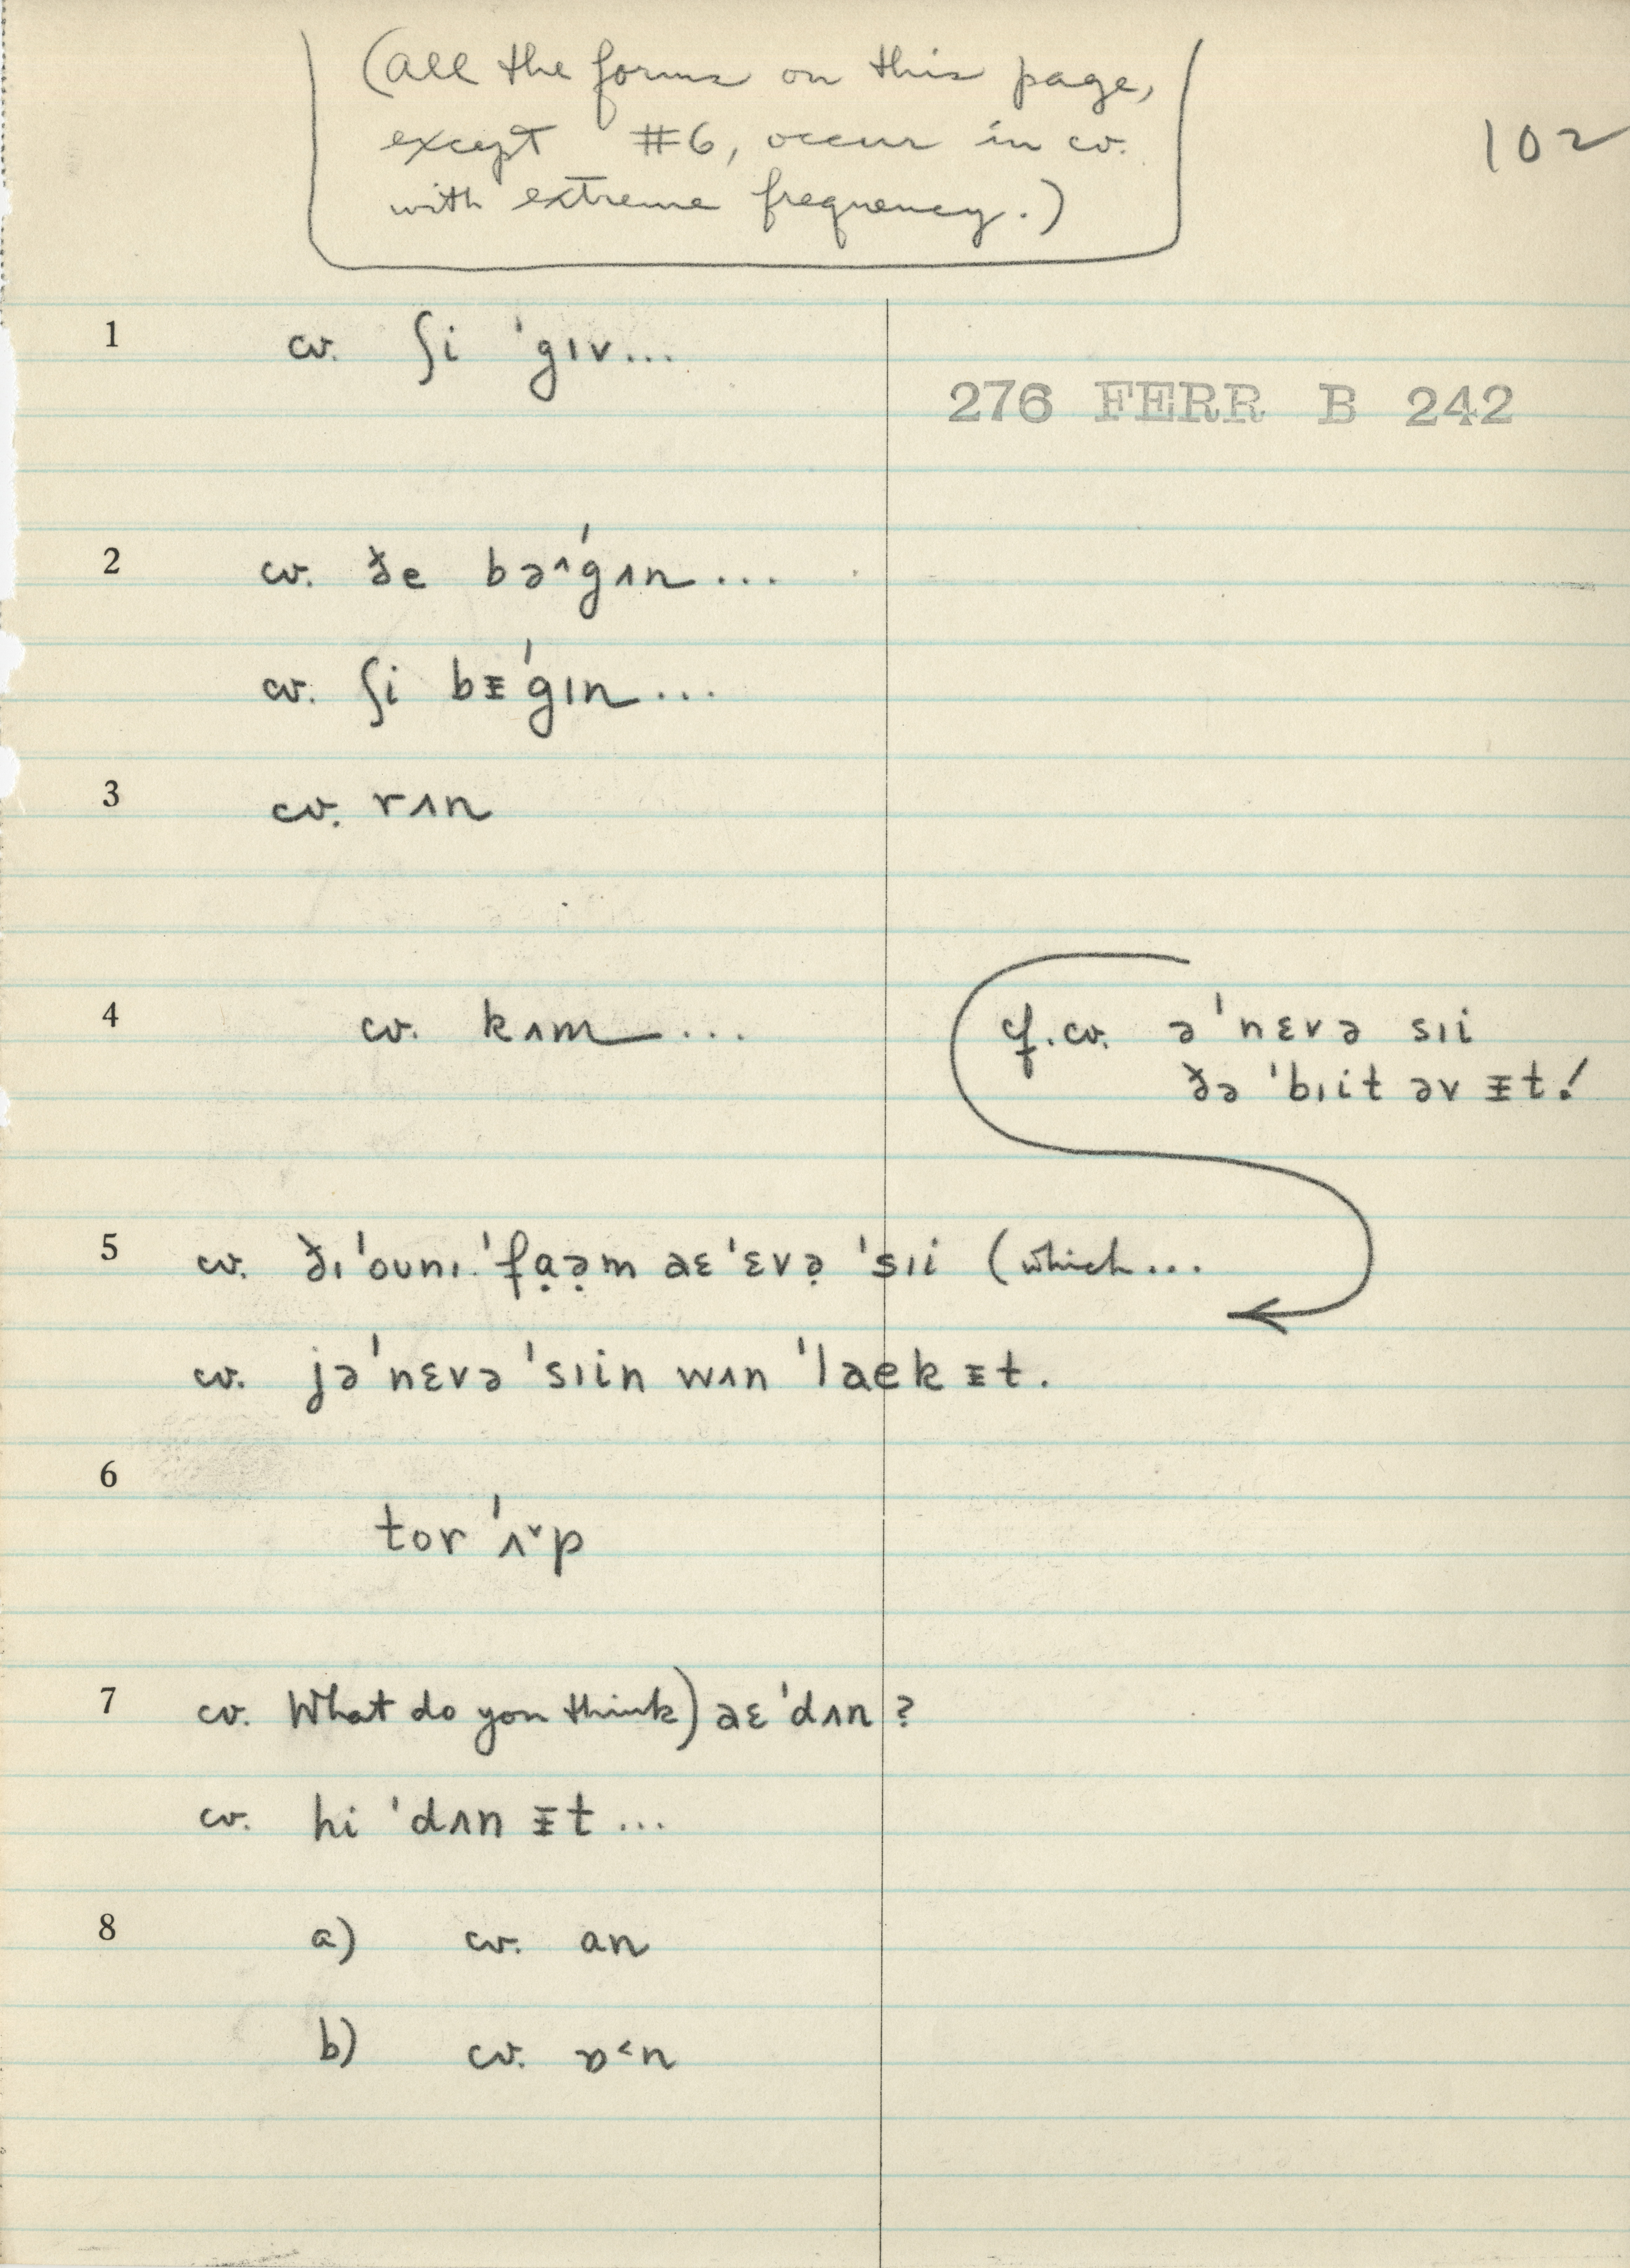 (All the forms on this page,
except #6, occur in cv.
with extreme frequency.)
102
1 cv. ʃi ˈgɪv...
276 FERR B 242
2 cv. ðe bə^ˈgʌn...
cv. ʃi bᵻˈgɪn...
3 cv. rʌn
4 cv. kʌm...
cf. cv. əˈnɛvə sɪi
ðə ˈbɪit əv ᵻt!
5 cv. ðɪˈoʊnɪ ˈfạə̣m aɛˈɛvə̣ ˈsɪi (which...
cv. jəˈnɛvə ˈsɪin wʌn ˈlaek ᵻt.
6 tor ˈʌ˅p
7 cv. What do you think) aɛˈdʌn?
cv. hi ˈdʌn ᵻt...
8 a) cv. an
b) cv. ɒ<n